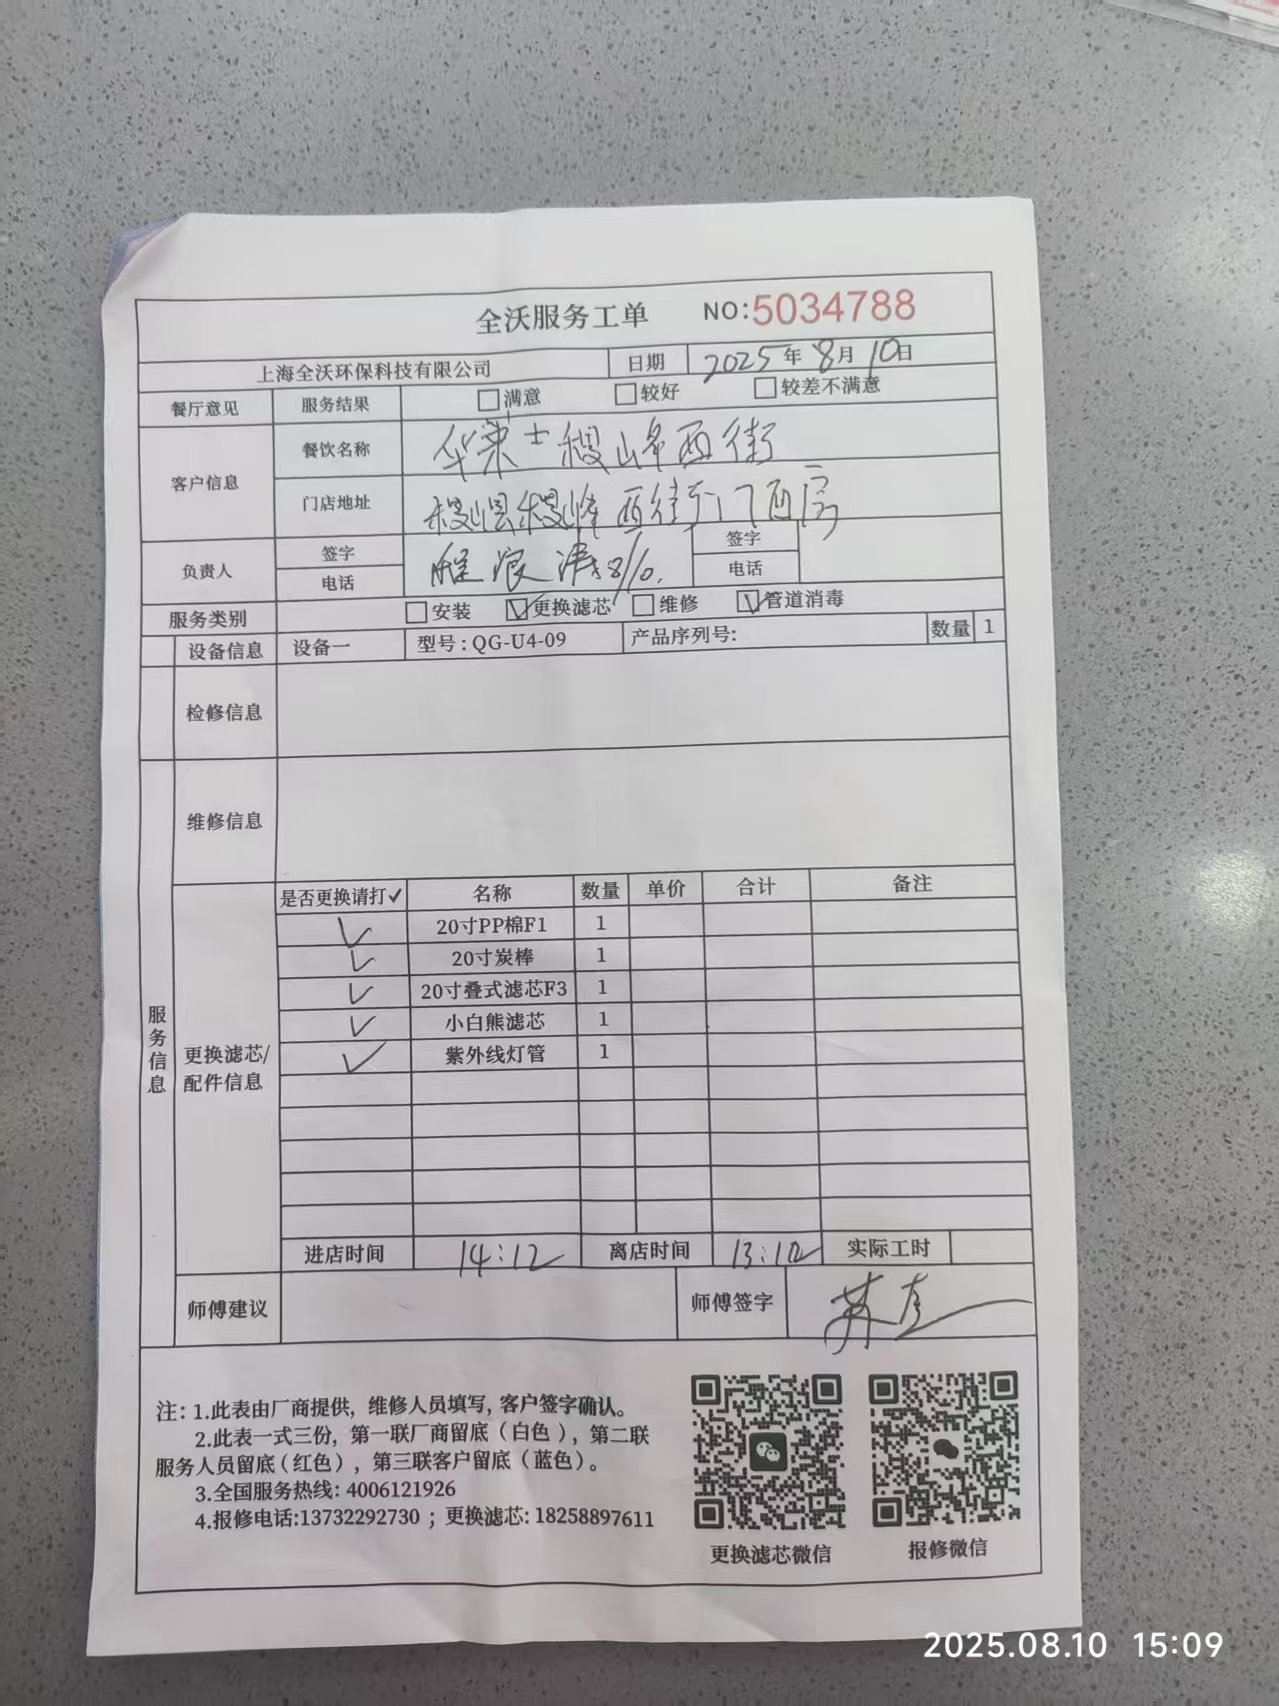 全沃服务工单 NO:5034788
上海全沃环保科技有限公司 日期 2025年8月10日
餐厅意见 服务结果 满意 较好 较差不满意
客户信息 餐饮名称 华莱士稷峰西街
门店地址 稷山县稷峰西街
负责人 签字 签字
电话 电话
服务类别 安装 更换滤芯 维修 管道消毒
设备信息 设备一 型号：QG-U4-09 产品序列号： 数量 1
检修信息
维修信息
服务信息
更换滤芯/
配件信息
是否更换请打✓ 名称 数量 单价 合计 备注
✓ 20寸PP棉F1 1
✓ 20寸炭棒 1
✓ 20寸叠式滤芯F3 1
✓ 小白熊滤芯 1
✓ 紫外线灯管 1
进店时间 14:12 离店时间 13:12 实际工时
师傅建议 师傅签字
注：1.此表由厂商提供，维修人员填写，客户签字确认。
2.此表一式三份，第一联厂商留底（白色），第二联
服务人员留底（红色），第三联客户留底（蓝色）。
3.全国服务热线：4006121926
4.报修电话:13732292730；更换滤芯：18258897611
更换滤芯微信 报修微信
2025.08.10 15:09